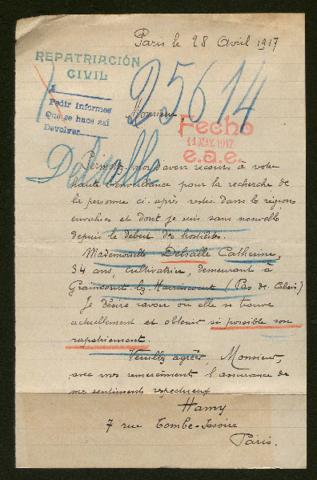 Paris le 28 Avril 1917
REPATRIACIÓN
CIVIL
25614
A
Pedir informes
Que se hace así
Devolver
Monsieur
Fecho
11 MAY. 1917
e.a.e.
Delsalle
Permettez moi d'avoir recours à votre
haute bienveillance pour la recherche de
la personne ci-après restée dans les régions
envahies et dont je suis sans nouvelle
depuis le début des hostilités.
Mademoiselle Delsalle Catherine,
34 ans, cultivatrice, demeurant à
Graincourt lez Havrincourt (Pas de Calais)
Je désire savoir où elle se trouve
actuellement et obtenir si possible son
rapatriement.
Veuillez agréer Monsieur,
avec mes remerciement l'assurance de
mes sentiments respectueux
Hamy
7 rue Tombe-Issoire
Paris.